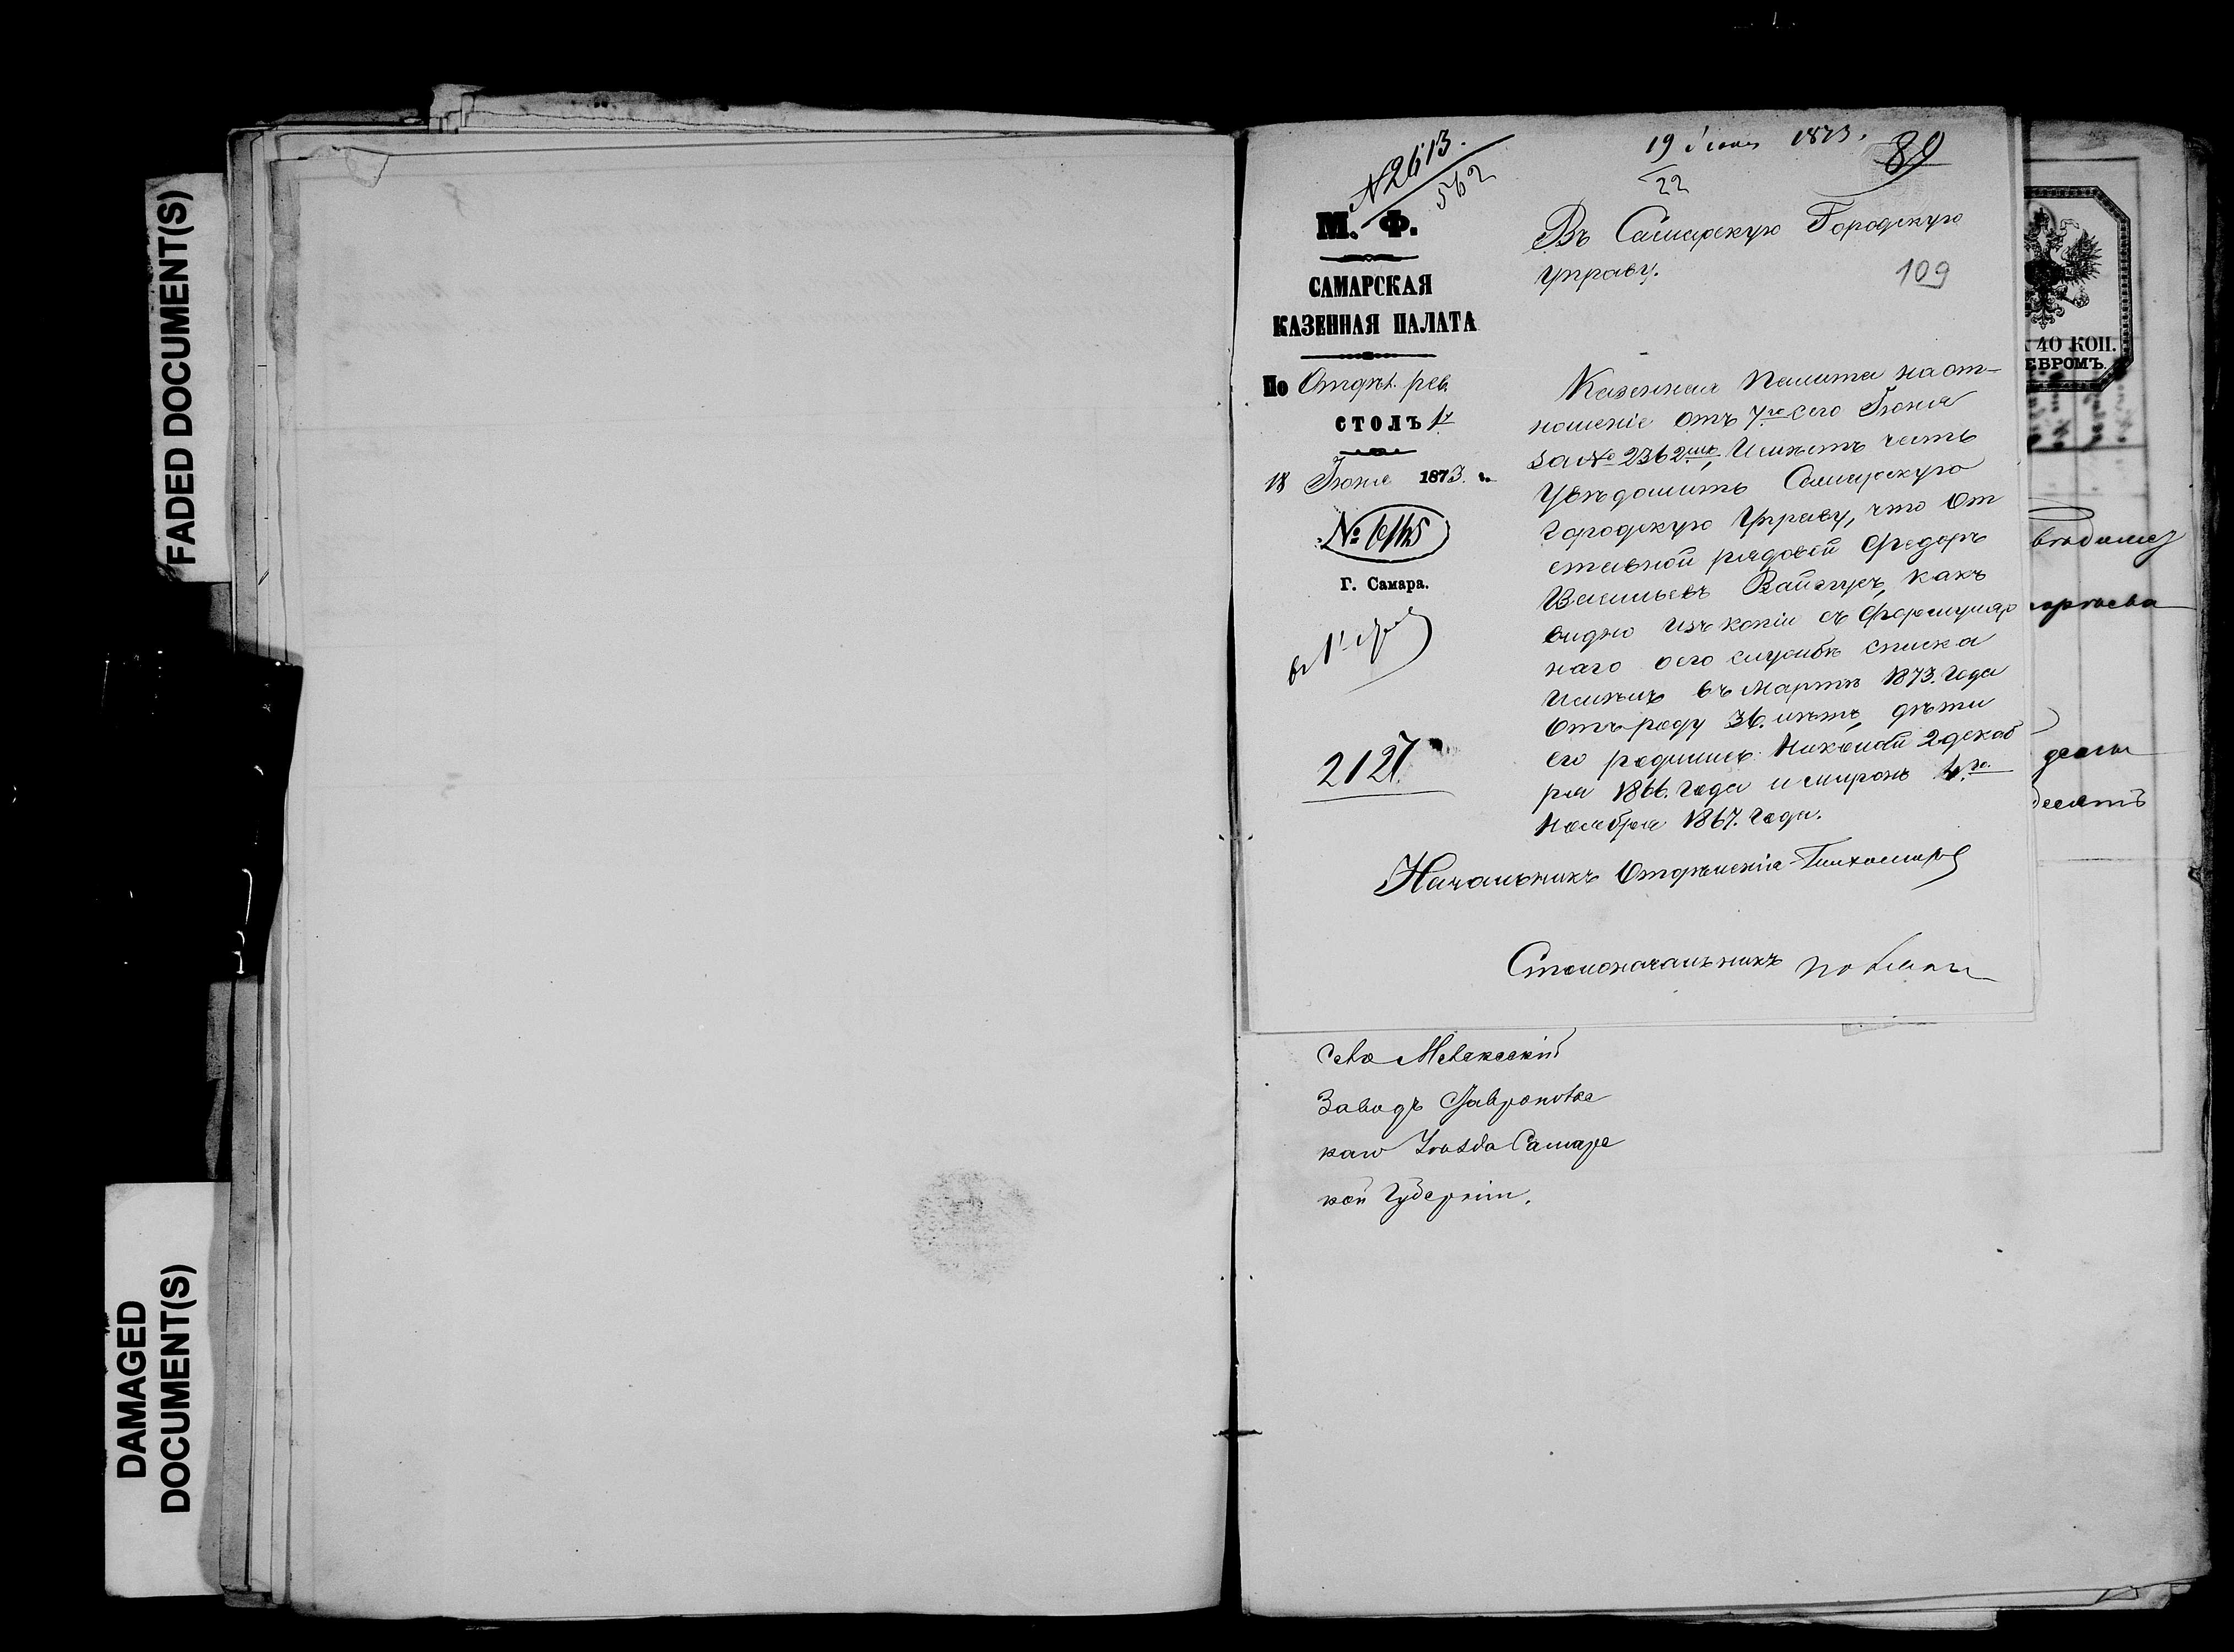 FADED DOCUMENT(S)
DAMAGED
DOCUMENT(S)
№2613.
562
19 Іюня 1873.
22
89
М. Ф.
САМАРСКАЯ
КАЗЕННАЯ ПАЛАТА
По Отдѣл. рев.
СТОЛЪ 1й
18 Іюня 1873. г.
№ 6145
Г. Самара.
2127
Въ Самарскую Городскую
Управу.
109
Казенная Палата на от-
ношеніе отъ 7го сего Іюня
за № 2362мъ, Имѣетъ честь
увѣдомить Самарскую
Городскую Управу, что От
ставной рядовой Федоръ
Васильевъ Вайнгусъ, какъ
видно изъ копіи съ формуляр
наго о его службѣ списка
имѣлъ въ Мартѣ 1873. года
Отъ роду 36. лѣтъ, дѣти
его родились Николай 2 декаб
ря 1866. года и Миронъ 4.го
Ноября 1867. года.
Начальникъ Отдѣленія Тихомиров
Столоначальникъ
40 КОП.
ЕБРОМЪ.
десять
Село Мелекесскій
Заводъ Ставропольс
каго Уѣзда Самарс
кой Губерніи.